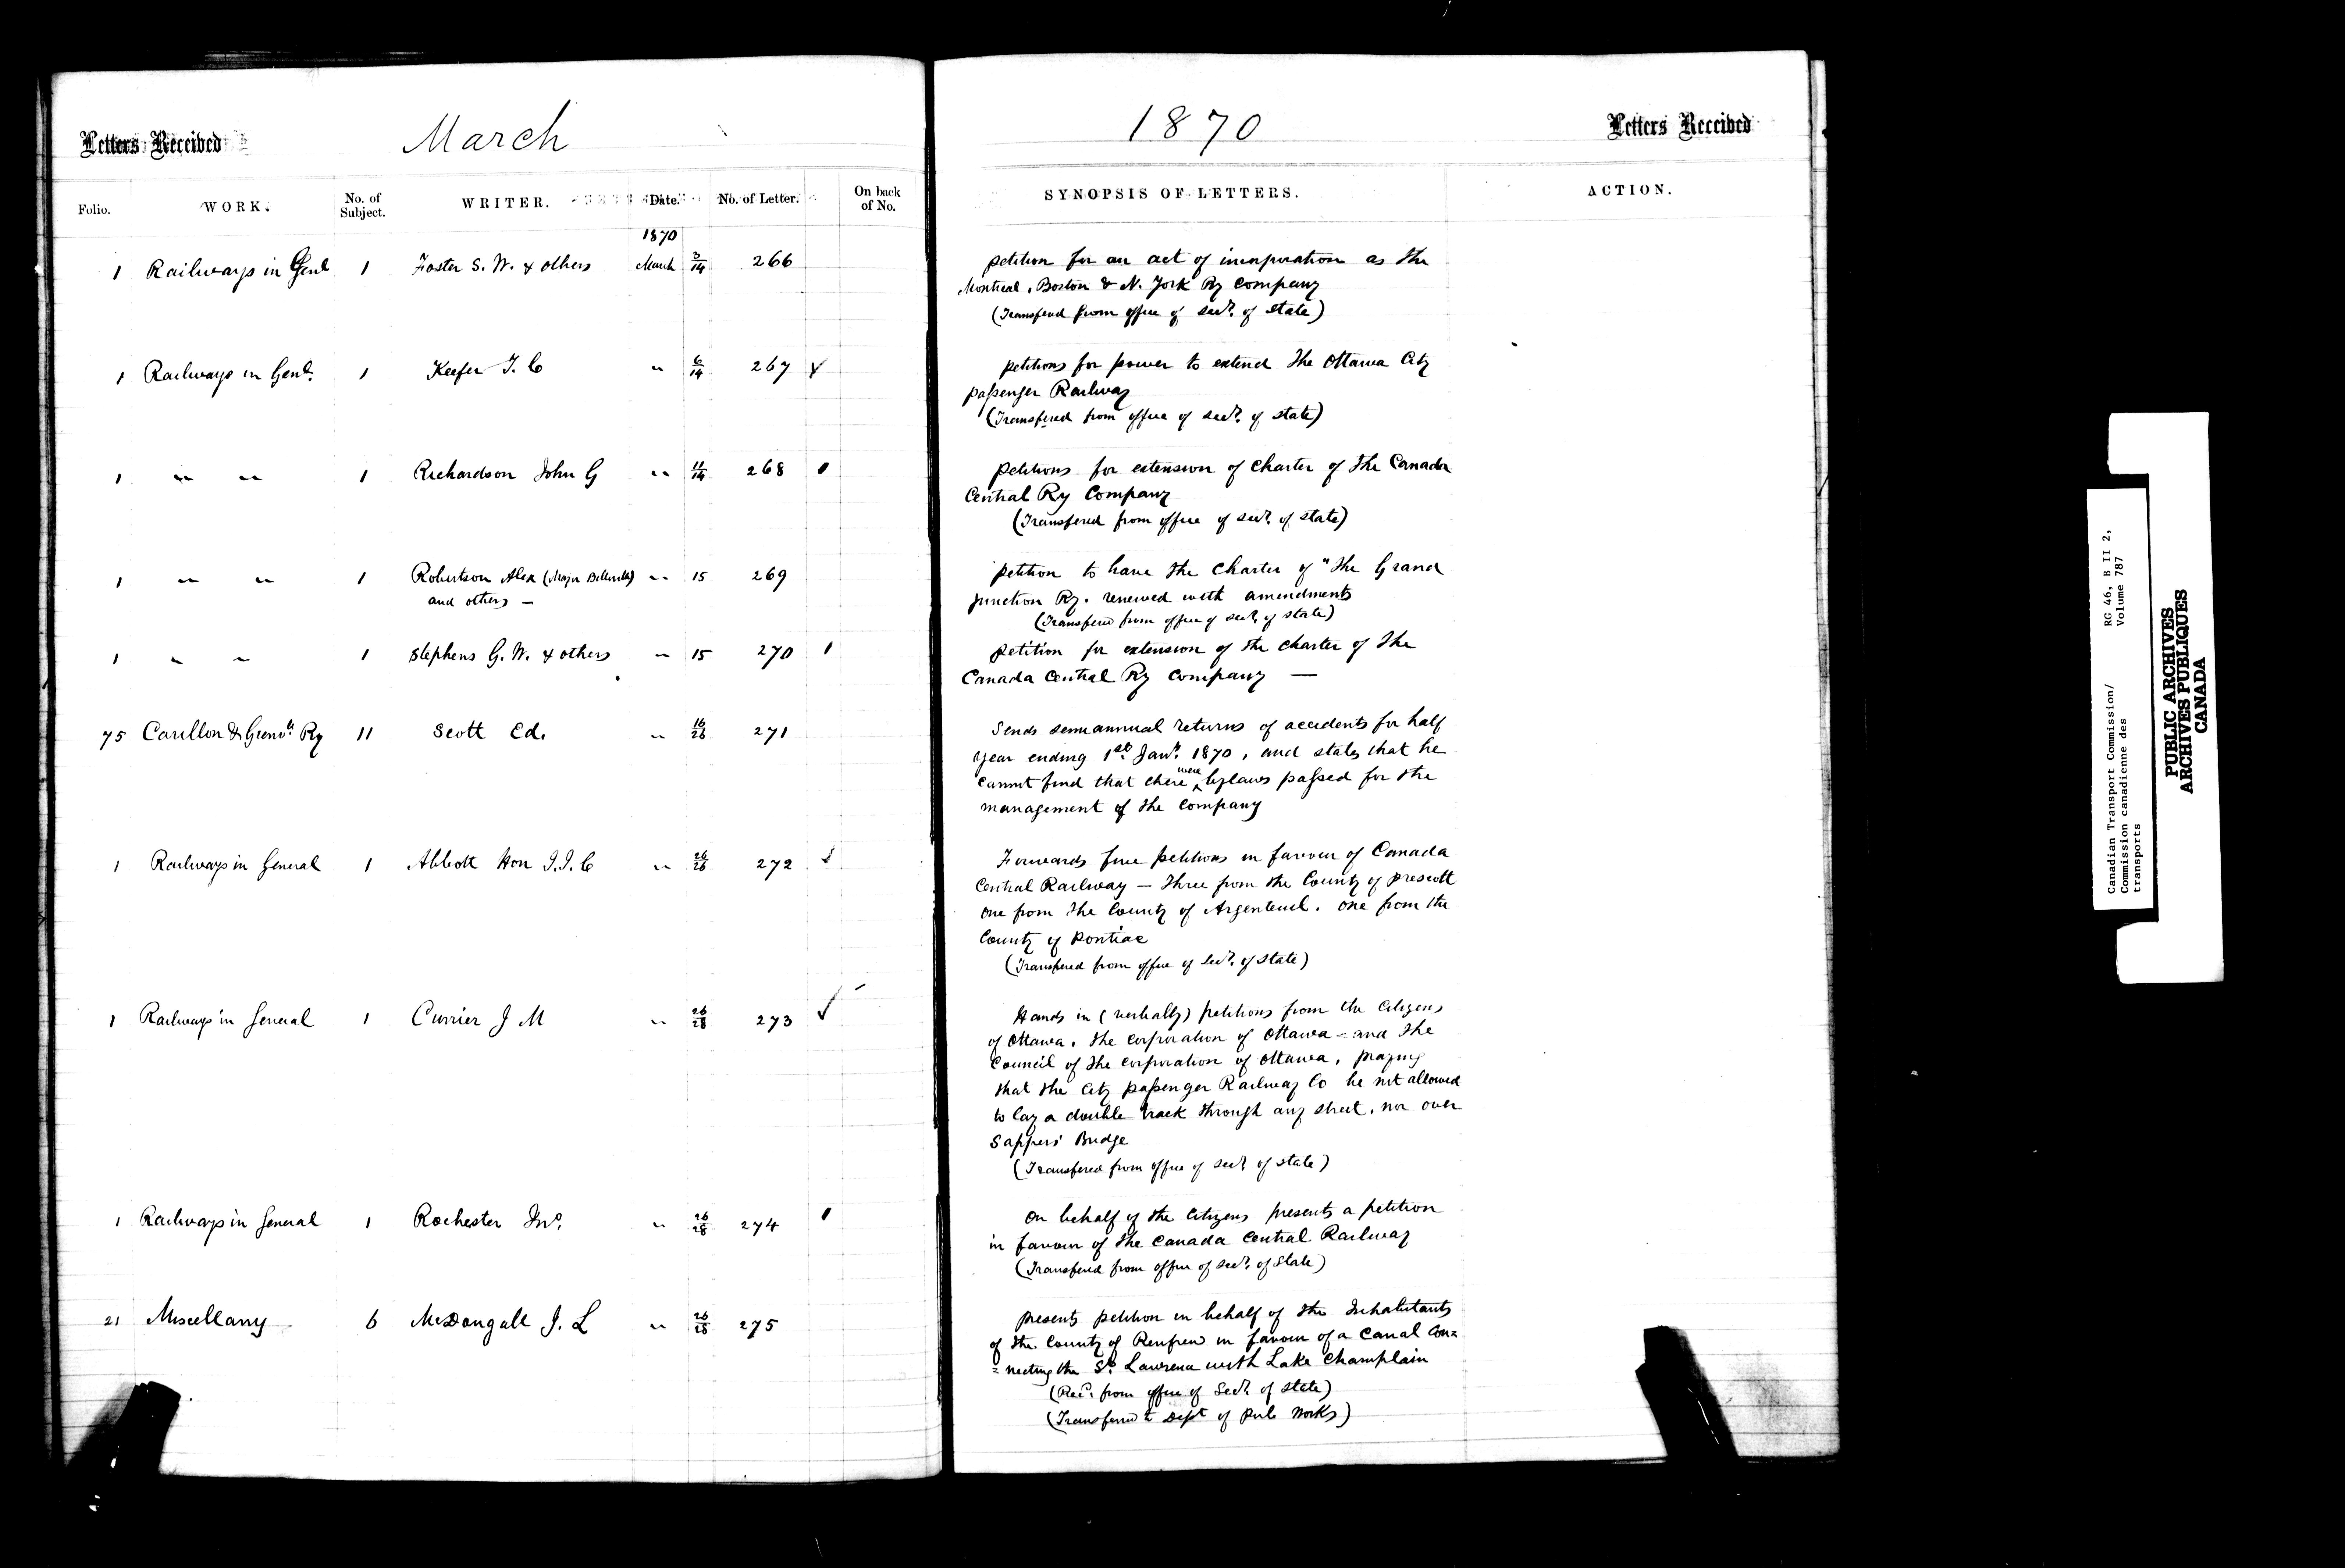 Letters Received
March
Folio. WORK. No. of Subject. WRITER. Date. No. of Letter. On back of No.
1870
1 Railways in Genl 1 Foster S. W. & others March 3/14 266
1 Railways in Genl. 1 Keefer T. C " 6/14 267 ✓
1 " " 1 Richardson John G " 11/14 268
1 " " 1 Robertson Alex (Mayor Belleville) " 15 269
and others —
1 " " 1 Stephens G. W. & others " 15 270
75 Carillon & Grenvle Ry 11 Scott Ed. " 16/26 271
1 Railways in General 1 Abbott Hon J. J. C " 26/26 272
1 Railways in General 1 Currier J M " 26/28 273 ✓
1 Railways in General 1 Rochester Jno. " 26/28 274
21 Miscellany 6 McDougall J. L " 26/28 275
1870
Letters Received
SYNOPSIS OF LETTERS. ACTION.
petition for an act of incorporation as the
Montreal, Boston & N. York Ry Company
(Transfered from office of Secy. of State)
petitions for power to extend the Ottawa City
passenger Railway
(Transfered from office of Secy. of State)
petitions for extension of charter of the Canada
Central Ry Company
(Transfered from office of Secy. of State)
petition to have the charter of "The Grand
Junction Ry. renewed with amendments
(Transfered from office of Secy. of State)
petition for extension of the charter of the
Canada Central Ry Company —
Sends semiannual returns of accidents for half
year ending 1st Jany. 1870, and states that he
cannot find that there were bylaws passed for the
management of the Company
Forwards five petitions in favour of Canada
Central Railway — Three from the County of Prescott
one from the County of Argenteuil. one from the
County of Pontiac
(Transfered from office of Secy. of State)
Hands in (verbally) petitions from the Citizens
of Ottawa, the corporation of Ottawa — and the
Council of the corporation of Ottawa, praying
that the City passenger Railway Co be not allowed
to lay a double track through any street, nor over
Sappers' Bridge
(Transfered from office of Secy. of State)
On behalf of the Citizens presents a petition
in favour of the Canada Central Railway
(Transfered from office of Secy. of State)
presents petition in behalf of the Inhabitants
of the County of Renfrew in favour of a Canal Con=
=necting the St. Lawrence with Lake Champlain
(Recd. from office of Secy. of State)
(Transferred to Dept of Pub Works)
Canadian Transport Commission/ RG 46, B II 2,
Commission canadienne des Volume 787
transports
PUBLIC ARCHIVES
ARCHIVES PUBLIQUES
CANADA